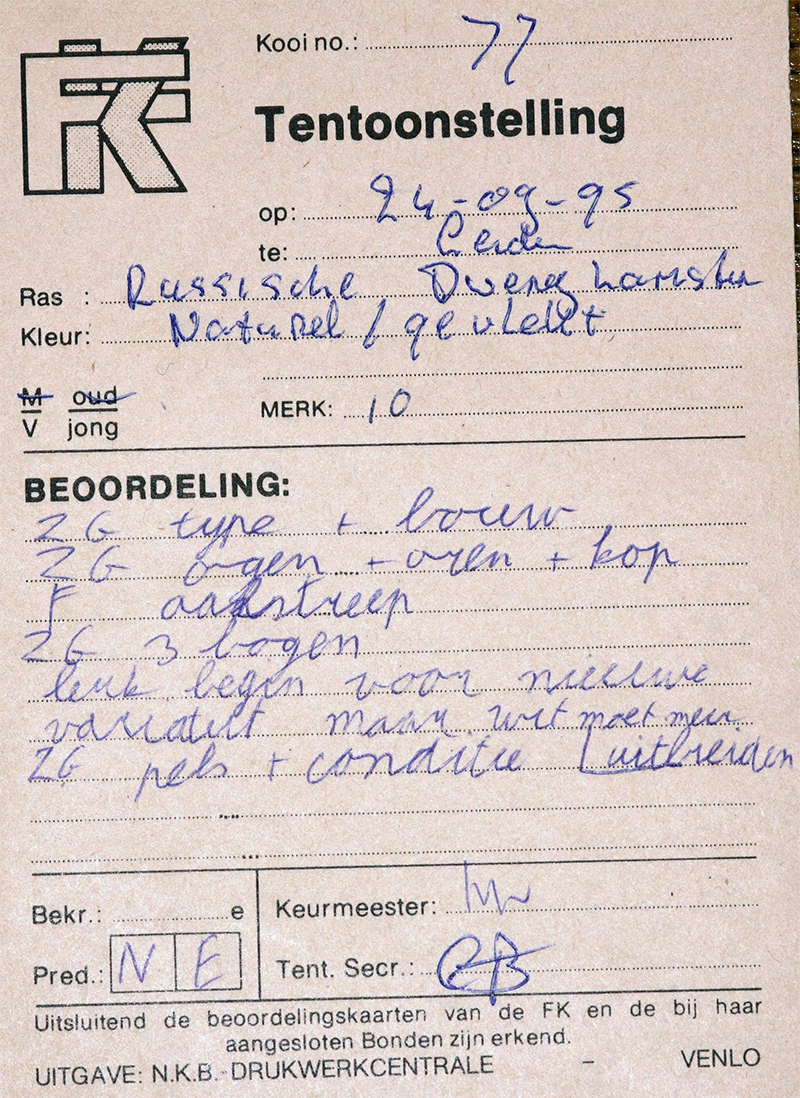 FK
Kooi no.: 77
Tentoonstelling
op: 24-09-95
te: Leiden
Ras : Russische Dwerg hamster
Kleur: Naturel / gevlekt
M oud
V jong
MERK: 10
BEOORDELING:
ZG type + bouw
ZG ogen + oren + kop
F aalstreep
ZG 3 bogen
leuk begin voor nieuwe
variateit maar wit moet meer
ZG pels + conditie uitbreiden
Bekr.: e
Keurmeester:
Pred.: N E
Tent. Secr.:
Uitsluitend de beoordelingskaarten van de FK en de bij haar
aangesloten Bonden zijn erkend.
UITGAVE: N.K.B. DRUKWERKCENTRALE – VENLO